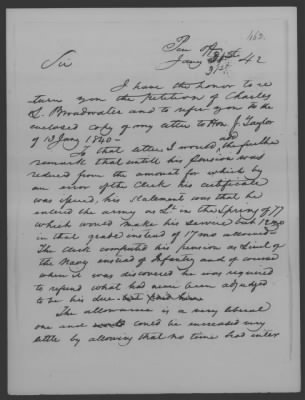 162.
Pen Off
Jany 31st 42
31st.
Sir
I have the honor to re
turn you the Petition of Charles
L. Broadwater and to refer you to the
enclosed copy of my letter to Hon J. Taylor
of 13 Jany 1840—
To that letter I would add the further
remark that untill his pension was
reduced from the amount for which by
an error of the Clerk his certificate
was issued, his statement was that he
entered the army as Lt. in the Spring of 77
which would make his service but 12 mo
in that grade instead of 17 mo allowed—
The Clerk computed his pension as Lieut of
the Navy instead of Infantry and of course
when it was discovered he was required
to refund what had never been adjudged
to be his due— but paid him
The allowance is a very liberal
one and could be increased very
little by allowing that no time had inter